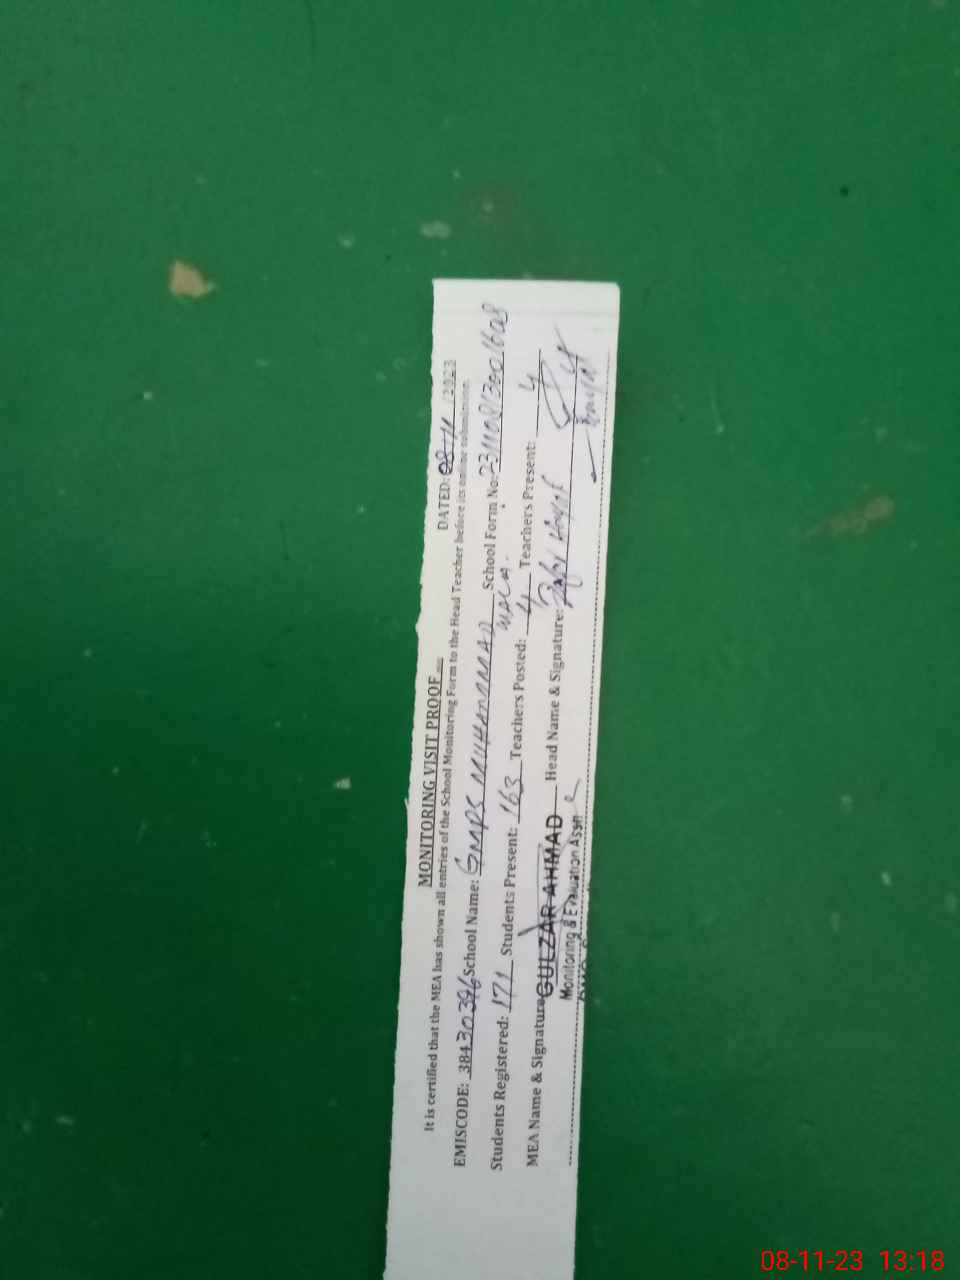 MONITORING VISIT PROOF
DATED: 08-11/2023
It is certified that the MEA has shown all entries of the School Monitoring Form to the Head Teacher before its online submission.
EMISCODE: 38430396 School Name: GMPS MUHAMMAD WALA. School Form No:
Students Registered: 171 Students Present: 163 Teachers Posted: 4 Teachers Present: 4
MEA Name & Signature GULZAR AHMAD Head Name & Signature:
Monitoring & Evaluation Asstt
08-11-23 13:18